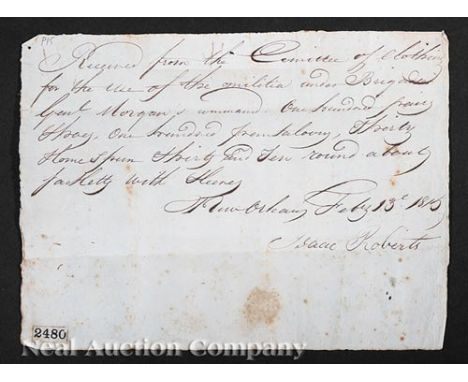 P15
Received from the Comittee of Clothing
for the use of the militia under Brigadier
Genl. Morgan's command One hundred pairs
Shoes, One hundred Pantaloons, Thirty
Homespun Shirts and Ten round about
Jacketts with Sleeves
New Orleans Feby 13th 1815
Isaac Roberts
2480
Neal Auction Company